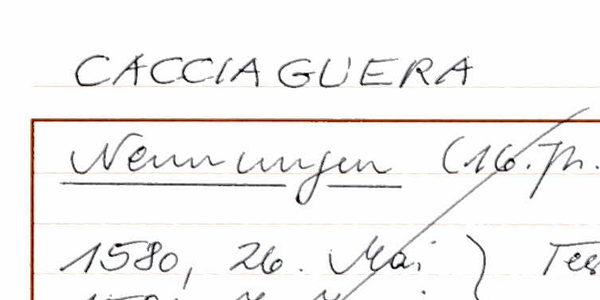 CACCIAGUERA
Nennungen (16. Jh.
1580, 26. Mai } Tes